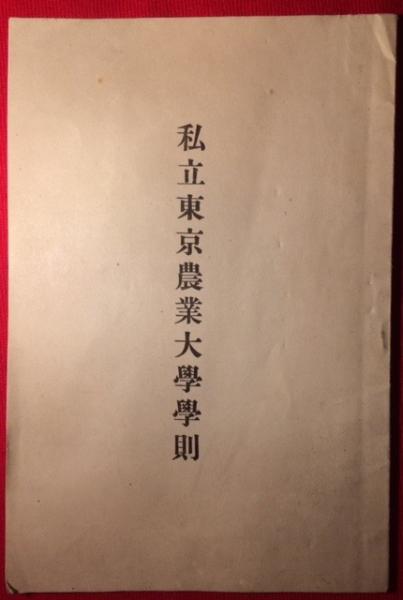 私立東京農業大學學則